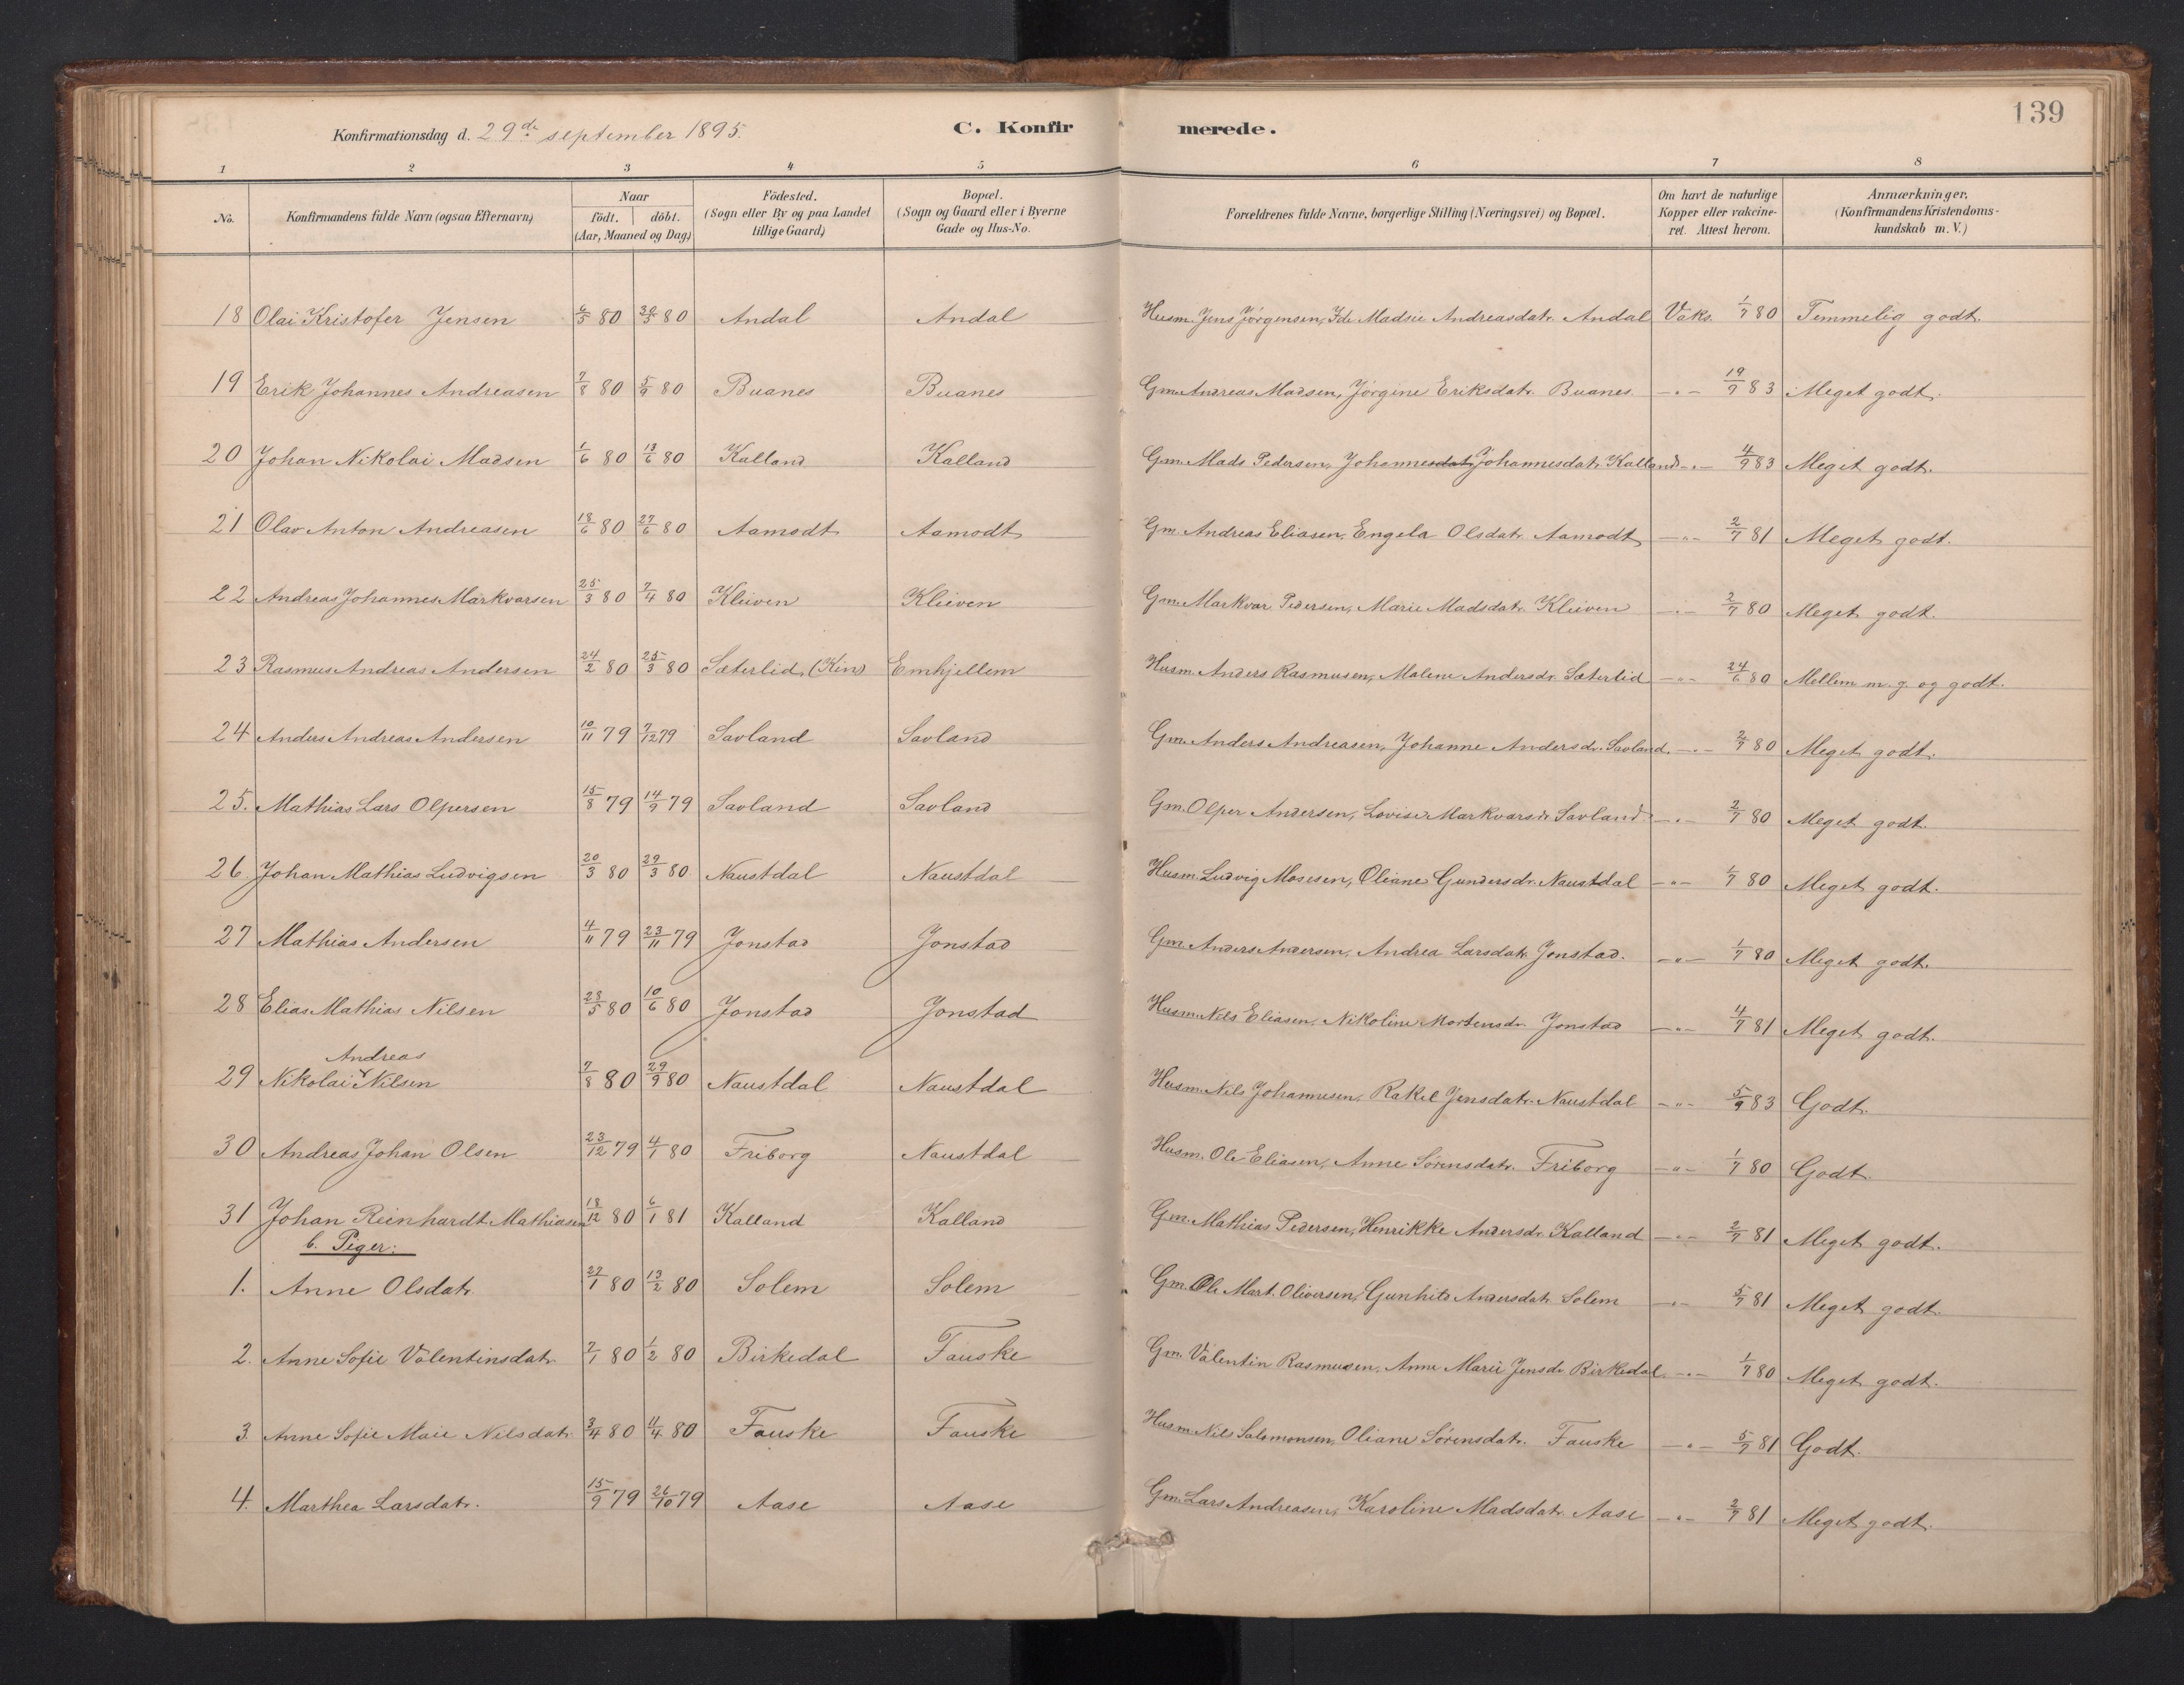 139
Konfirmationsdag d. 29de september 1895. C. Konfir merede.
1 2 3 4 5 6 7 8
No. Konfirmandens fulde Navn (ogsaa Efternavn) Naar födt. döbt. (Aar, Maaned og Dag) Födested. (Sogn eller By og paa Landet tillige Gaard) Bopæl. (Sogn og Gaard eller i Byerne Gade og Hus-No. Forældrenes fulde Navne, borgerlige Stilling (Næringsvei) og Bopæl. Om havt de naturlige Kopper eller vakcineret. Attest herom. Anmærkninger, (Konfirmandens Kristendomskundskab m. V.)
18 Olai Kristofer Jensen 6/5 80 30/5 80 Andal Andal Husm. Jens Jørgensen, Ide Madsie Andreasdatr. Andal Vaks. 1/7 80 Temmelig godt.
19 Erik Johannes Andreasen 7/8 80 5/9 80 Buanes Buanes Gm. Andreas Madsen, Jørgine Eriksdatr. Buanes -"- 19/9 83 Meget godt.
20 Johan Nikolai Madsen 1/6 80 13/6 80 Kalland Kalland Gm. Mads Pedersen, Johannesdatr Johannesdatr. Kalland -"- 4/9 83 Meget godt.
21 Olav Anton Andreasen 18/6 80 27/6 80 Aamodt Aamodt Gm. Andreas Eliasen, Engela Olsdatr. Aamodt -"- 2/7 81 Meget godt.
22 Andreas Johannes Markvarsen 25/3 80 7/4 80 Kleiven Kleiven Gm. Markvar Pedersen, Marie Madsdatr. Kleiven -"- 2/7 80 Meget godt.
23 Rasmus Andreas Andersen 24/2 80 25/3 80 Sæterlid (Kin) Emhjellem Husm. Anders Rasmusen, Malene Andersdr. Sæterlid -"- 24/6 80 Mellem m. g. og godt.
24 Anders Andreas Andersen 10/11 79 7/12 79 Savland Savland Gm. Anders Andreasen, Johanne Andersdr. Savland -"- 2/7 80 Meget godt.
25. Mathias Lars Olpersen 15/8 79 14/9 79 Savland Savland Gm. Olper Andersen, Lovise Markvarsdr. Savland -"- 2/7 80 Meget godt.
26. Johan Mathias Ludvigsen 20/3 80 29/3 80 Naustdal Naustdal Husm. Ludvig Mosesen, Oliane Gundersdr. Naustdal -"- 1/7 80 Meget godt.
27 Mathias Andersen 4/11 79 23/11 79 Jonstad Jonstad Gm. Anders Andersen, Andrea Larsdatr. Jonstad. -"- 1/7 80 Meget godt.
28 Elias Mathias Nilsen 28/5 80 10/6 80 Jonstad Jonstad Husm. Nils Eliasen, Nikoline Mortensdr. Jonstad -"- 4/7 81 Meget godt.
Andreas
29 Nikolai Nilsen 7/8 80 29/9 80 Naustdal Naustdal Husm. Nils Johannesen, Rakel Jensdatr. Naustdal -"- 5/9 83 Godt.
30 Andreas Johan Olsen 23/12 79 4/1 80 Friborg Naustdal Husm. Ole Eliasen, Anne Sørensdatr. Friborg -"- 1/7 80 Godt.
31 Johan Reinhardt Mathiasen 18/12 80 6/1 81 Kalland Kalland Gm. Mathias Pedersen, Henrikke Andersdr. Kalland -"- 2/7 81 Meget godt.
b. Piger:
1. Anne Olsdatr. 27/1 80 13/2 80 Solem Solem Gm. Ole Mart. Oliversen, Gunhild Andersdatr. Solem -"- 5/7 81 Meget godt.
2. Anne Sofie Valentinsdatr. 2/1 80 1/2 80 Birkedal Fauske Gm. Valentin Rasmusen, Anne Marie Jensdr. Birkedal -"- 1/7 80 Meget godt.
3. Anne Sofie Maie Nilsdatr. 3/4 80 11/4 80 Fauske Fauske Husm. Nils Salomonsen, Oliane Sørensdatr. Fauske -"- 5/7 81 Godt.
4. Marthea Larsdatr. 15/9 79 26/10 79 Aase Aase Gm. Lars Andreasen, Karoline Madsdatr. Aase -"- 2/7 81 Meget godt.